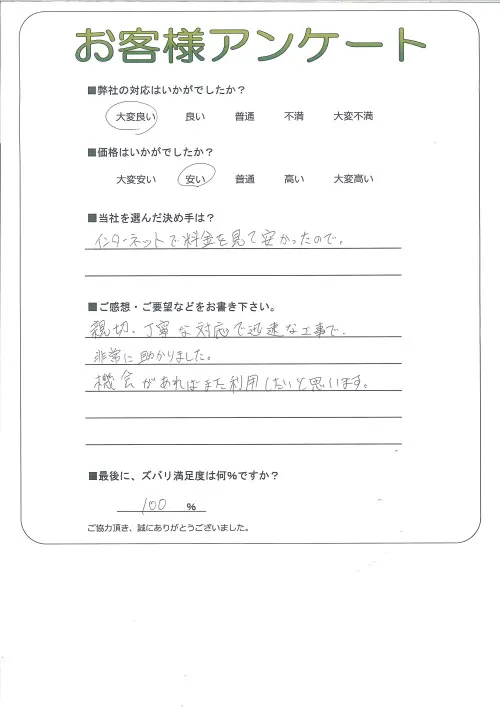 お客様アンケート
■弊社の対応はいかがでしたか？
大変良い 良い 普通 不満 大変不満
■価格はいかがでしたか？
大変安い 安い 普通 高い 大変高い
■当社を選んだ決め手は？
インターネットで料金を見て安かったので。
■ご感想・ご要望などをお書き下さい。
親切、丁寧な対応で迅速な工事で、
非常に助かりました。
機会があればまた利用したいと思います。
■最後に、ズバリ満足度は何％ですか？
100 ％
ご協力頂き、誠にありがとうございました。